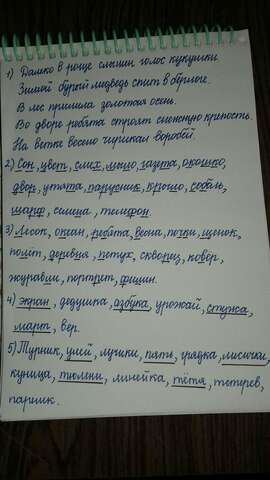 1) Далеко в роще слышен голос кукушки.
Зимой бурый медведь спит в берлоге.
В лес пришла золотая осень.
Во дворе ребята строят снежную крепость.
На ветке весело чирикал воробей.
2) Сон, цвет, смех, мыло, газета, окошко,
двор, утята, парусник, крыло, соболь,
шарф, синица, телефон.
3) Лесок, океан, ребята, весна, почки, щенок,
полёт, деревня, петух, скворец, ковёр,
журавли, портрет, филин.
4) экран, дедушка, азбука, урожай, стужа,
марш, вер.
5) Турник, улей, лучики, пять, грядка, лисички,
куница, тюлени, линейка, тётя, тетерев,
парник.